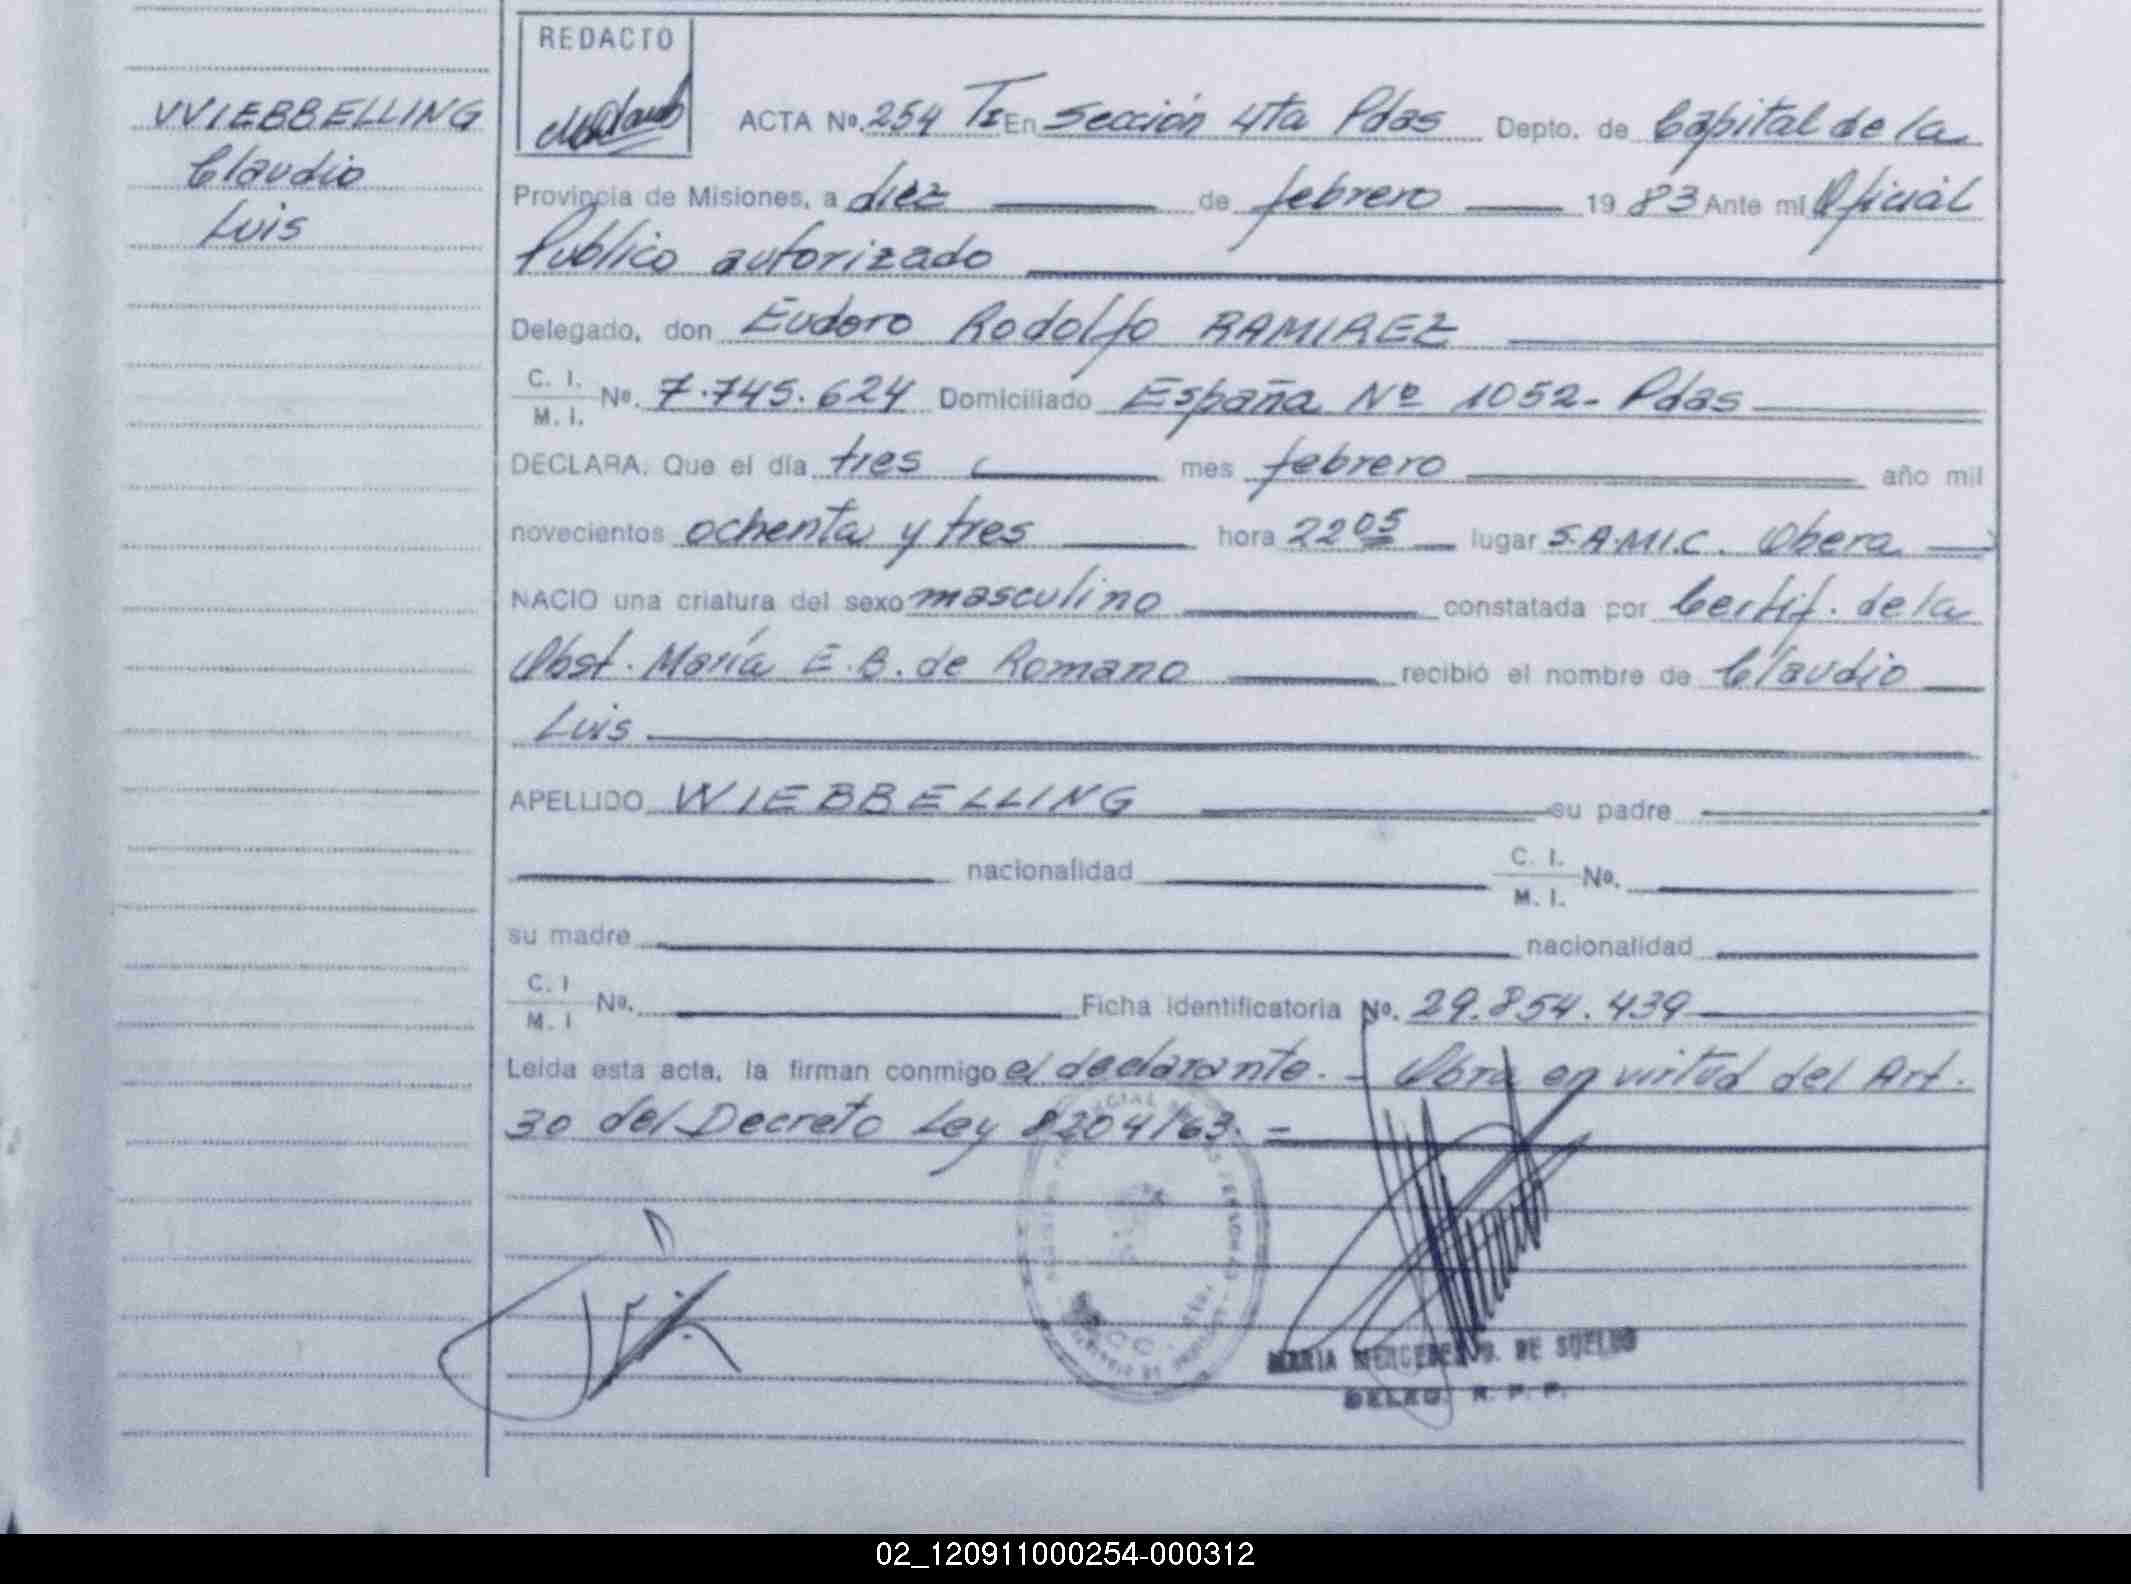 REDACTO
WIEBBELLING
Claudio
Luis
ACTA Nº. 254 Tº I En Sección 4ta Pdas Depto. de Capital de la
Provincia de Misiones, a diez de febrero 1983 Ante mí Oficial
Publico autorizado
Delegado, don Eudoro Rodolfo RAMIREZ
C. I. M. I. Nº. 7.745.624 Domiciliado España Nº 1052- Pdas
DECLARA: Que el día tres mes febrero año mil
novecientos ochenta y tres hora 22 05 lugar S.A.M.I.C. Obera
NACIO una criatura del sexo masculino constatada por Certif. de la
Obst. María E.B. de Romano recibió el nombre de Claudio
Luis
APELLIDO WIEBBELLING su padre
nacionalidad C. I. M. I. Nº.
su madre nacionalidad
C. I M. I Nº. Ficha identificatoria Nº. 29.854.439
Leída esta acta, la firman conmigo el declarante. - Obra en virtud del Art.
30 del Decreto Ley 8204/63. -
MARIA MERCEDES DE SUELDO
DELEG. R. P. P.
02_120911000254-000312